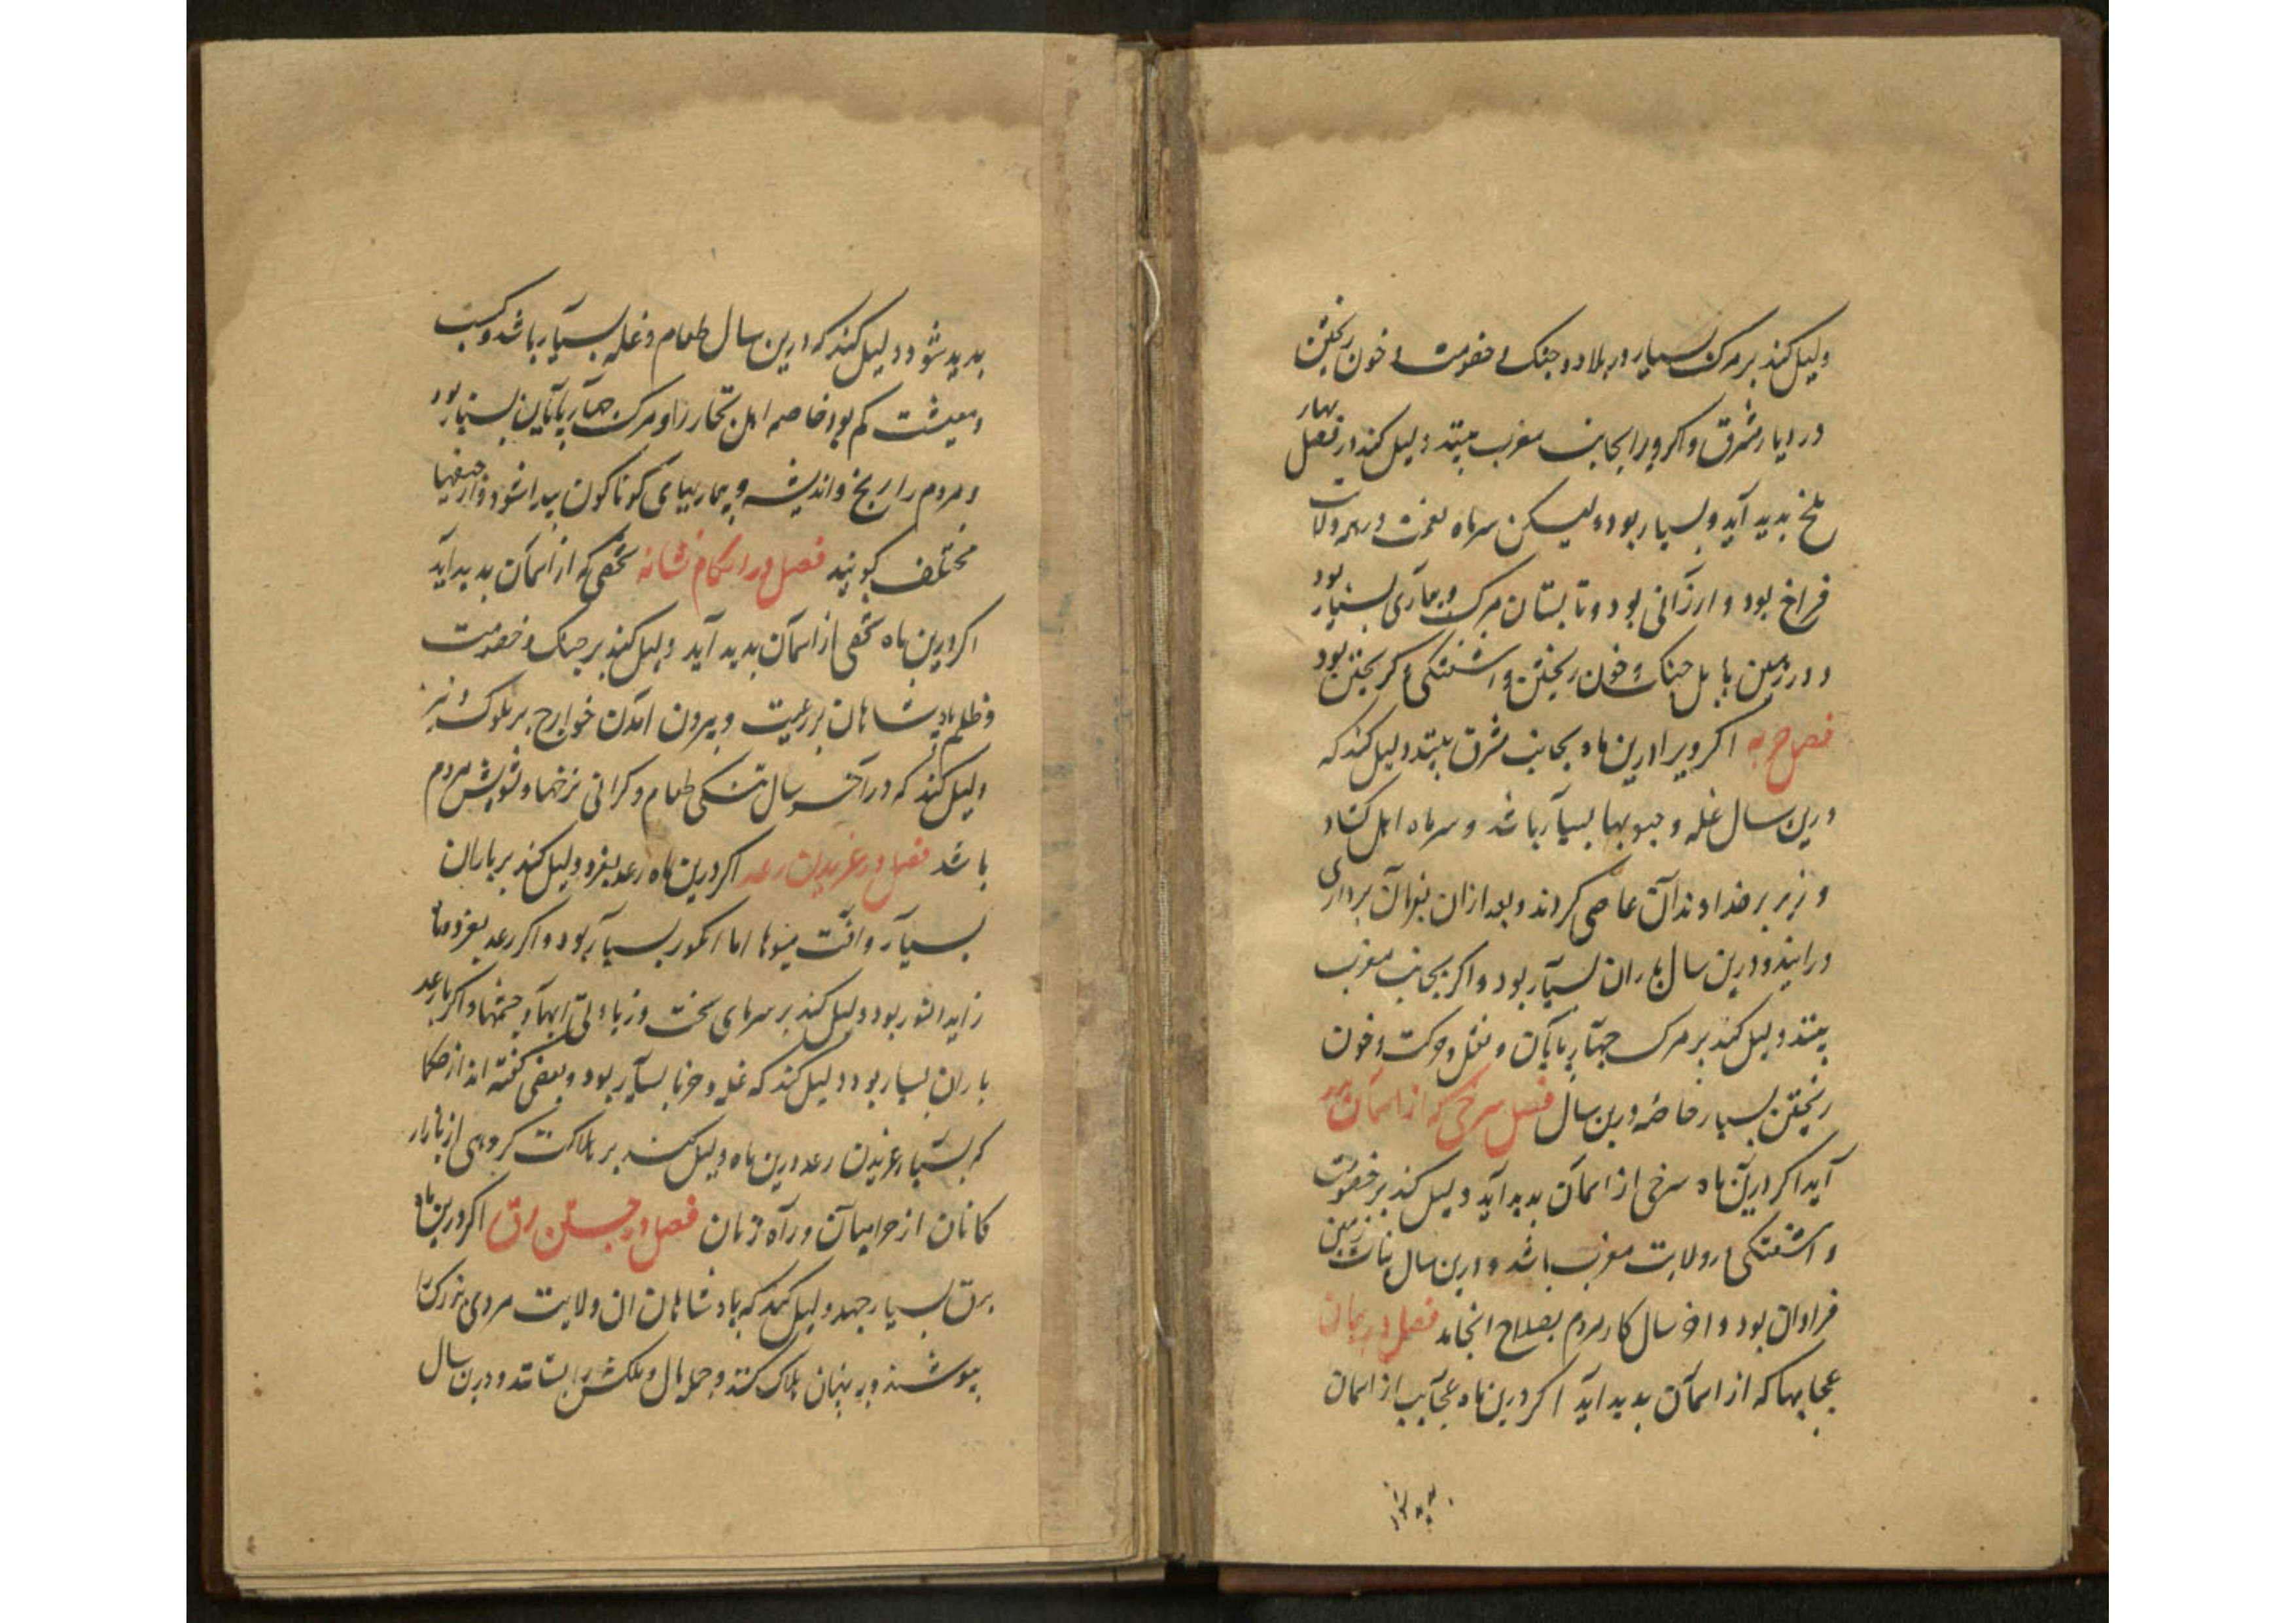 دلیل کند بر مرک بسیار در بلاد و جنک و خصومت و خون ریختن
در دیار مشرق و اکر ویرا بجانب مغرب بینند دلیل کند در فصل بهار
ملخ بدید آید و بسیار بود و لیکن سرماه نعمت در همه ولات
فراخ بود و ارزانی بود و تابستان مرک و بیماری بسیار بود
و در زمین بابل جنک و خون ریختن و اشفتکی و کریختن بود
فصل اکر ویرا درین ماه بجانب مشرق بینند دلیل کند که
درین سال غله و حبوبها بسیار باشد و سرماه اهل
و بر خداوندان عاصی کردند و بعد ازان بفرمان برداری
درایند و درین سال باران بسیار بود و اکر بجانب مغرب
بینند دلیل کند بر مرک جهارپایان و حرکت و خون
ریختن بسیار خاصه درین سال فصل سرخی که از اسمان بدید
آید اکر درین ماه سرخی از اسمان بدید آید دلیل کند بر خصومت
و اشفتکی در ولایت مغرب باشد و درین سال نبات زمین
فراوان بود و اخر سال کار مردم بصلاح انجامد فصل در بیان
عجایبها که از اسمان بدید اید اکر درین ماه عجایب از اسمان
بدید شود دلیل کند که درین سال طعام و غله بسیار باشد و کسب
و معیشت کم بود خاصه اهل تجار را و مرک جهارپایان بسیار بود
و مردم را رنج و اندیشه و بیماریهای کوناکون پیدا شود و
مختلف کویند فصل در احکام نشانه تحفی که از اسمان بدید آید
اکر درین ماه تحفی از اسمان بدید آید دلیل کند بر جنک و خصومت
و ظلم پادشاهان بر رعیت و بیرون امدن خوارج بر ملوک و نیز
دلیل کند که در آخر سال تنکی طعام و کرانی نرخها و تشویش مردم
باشد فصل در غریدن رعد اکر درین ماه رعد بغرد دلیل کند بر باران
بسیار و آفت میوها اما انکور بسیار بود و اکر رعد بغرد و ماه
زاید النور بود دلیل کند بر سرمای سخت و زیادتی ابها و چشمها و اکر با رعد
باران بسیار بود دلیل کند که غله و خرما بسیار بود و بعضی کفته اند از حکما
که بسیار غریدن رعد درین ماه دلیل کند بر هلاکت کروهی از بازار
کانان از حرامیان و راه زنان فصل در جستن برق اکر درین ماه
برق بسیار جهد دلیل کند که پادشاهان ان ولایت مردی بزرک را
بپوشند و به پنهان هلاک کنند و جمله مال و ملکش را بستانند و درین سال